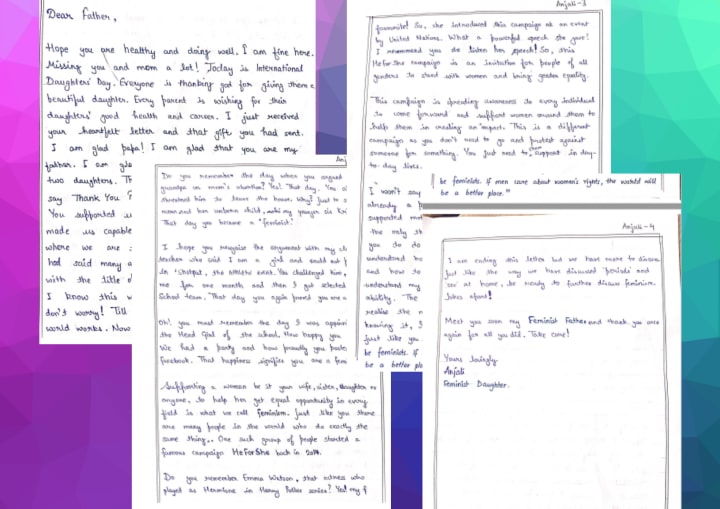 Dear Father,
Hope you are healthy and doing well. I am fine here.
Missing you and mom a lot! Today is International
Daughters' Day. Everyone is thanking god for giving them a
beautiful daughter. Every parent is wishing for their
daughters' good health and career. I just received
your heartfelt letter and that gift you had sent.
I am glad papa! I am glad that you are my
father. I am gla
two daughters. Th
say Thank You
You supported u
made us capable
where we are
had said many
with the title o
I know this w
don't worry! Till
world works. Now
Anj
Do you remember the day when you argued
grandpa in mom's Yes! That day. You
threatened him to leave the house. Why? Just to
mom and her unborn child, my younger sis
That day you became a "feminist".
I hope you recognise the argument with my
teacher who said I am a girl and could not
in 'Shotput', the athletic event. You challenged him,
me for one month and then I got selected
School team. That day you again proved you are a
Oh! you must remember the day I was appoin
the Head Girl of the school. How happy you
We had a party and how proudly you
facebook. That happiness signifies you are a fem
Supporting a woman be it your wife, sister, daughter or
anyone, to help her get equal opportunity in every
field is what we call feminism. Just like you there
are many people in the world who do exactly the
same thing.. One such group of people started a
famous campaign HeForShe back in 2014.
Do you remember Emma Watson, that actress who
played as Hermione in Harry Potter series? Yes! my f
Anjali-3
favourite! So, she introduced this campaign at an event
by United Nations. What a powerful speech she gave!
I recommend you to listen her speech! So, this
HeForShe campaign is an invitation for people of all
genders to stand with women and bring gender equality.
This campaign is spreading awareness to every individual
to come forward and support women around them to
help them in creating an impact. This is a different
campaign as you don't need to go and protest against
someone for something. You just need to support in day-
to-day lives.
I won't say
already a
supported me
the only th
you to do
understand
and how to
understand my
ability. The
realise the
knowing it, I
just like you
be feminists. If
be a better pla
be feminists. If men care about women's rights, the world will
be a better place."
Anjali-4
I am ending this letter but we have more to discuss
Just like the way we have discussed 'periods' and
'sex' at home, be ready to further discuss feminism.
Jokes apart!
Meet you soon my Feminist Father and thank you once
again for all you did. Take care!
Yours lovingly
Anjali
Feminist Daughter.